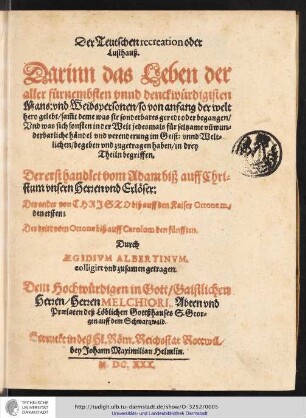 Der Teutschen recreation oder
Lusthauß,
Darinn das Leben der
aller fürnembsten vnnd denckwürdigsten
Mans: vnd Weibspersonen / so von anfang der welt
hero gelebt / sampt deme was sie sonderbares geredt oder begangen /
Vnd was sich sonsten in der Welt jedesmals für seltzame vñ wun-
derbarliche händel vnd verenderung im Geist: vnnd Welt-
lichen / begeben vnd zugetragen haben / in drey
Theiln begriffen.
Der erst handlet vom Adam biß auff Chri-
stum vnsern Herren vnd Erlöser:
Der ander von CHRISTO biß auff den Kaiser Ottonem,
den ersten:
Der dritt vom Ottone biß auff Carolum den fünfften.
Durch
ÆGIDIVM ALBERTINVM.
colligirt vnd zusamen getragen.
Dem Hochwürdigen in Gott / Gaistlichen
Herren / Herren MELCHIORI, Abten vnd
Praelaten deß Löblichen Gottßhauses S. Geor-
gen auff dem Schwartzwald.
Getruckt in deß Hl. Röm. Reichsstat Rottweil,
bey Johann Maximilian Helmlin.
M. DC. XXX.
TECHNISCHE
UNIVERSITÄT
DARMSTADT
http://tudigit.ulb.tu-darmstadt.de/show/D-3252/0005
Universitäts- und Landesbibliothek Darmstadt